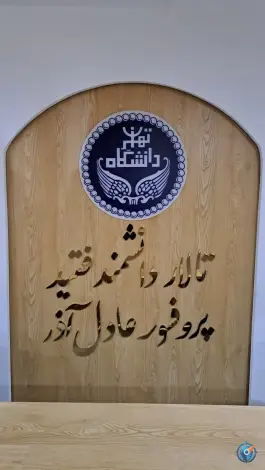 دانشگاه
تهران
تالار دانشمند فقید
پروفسور عادل آذر